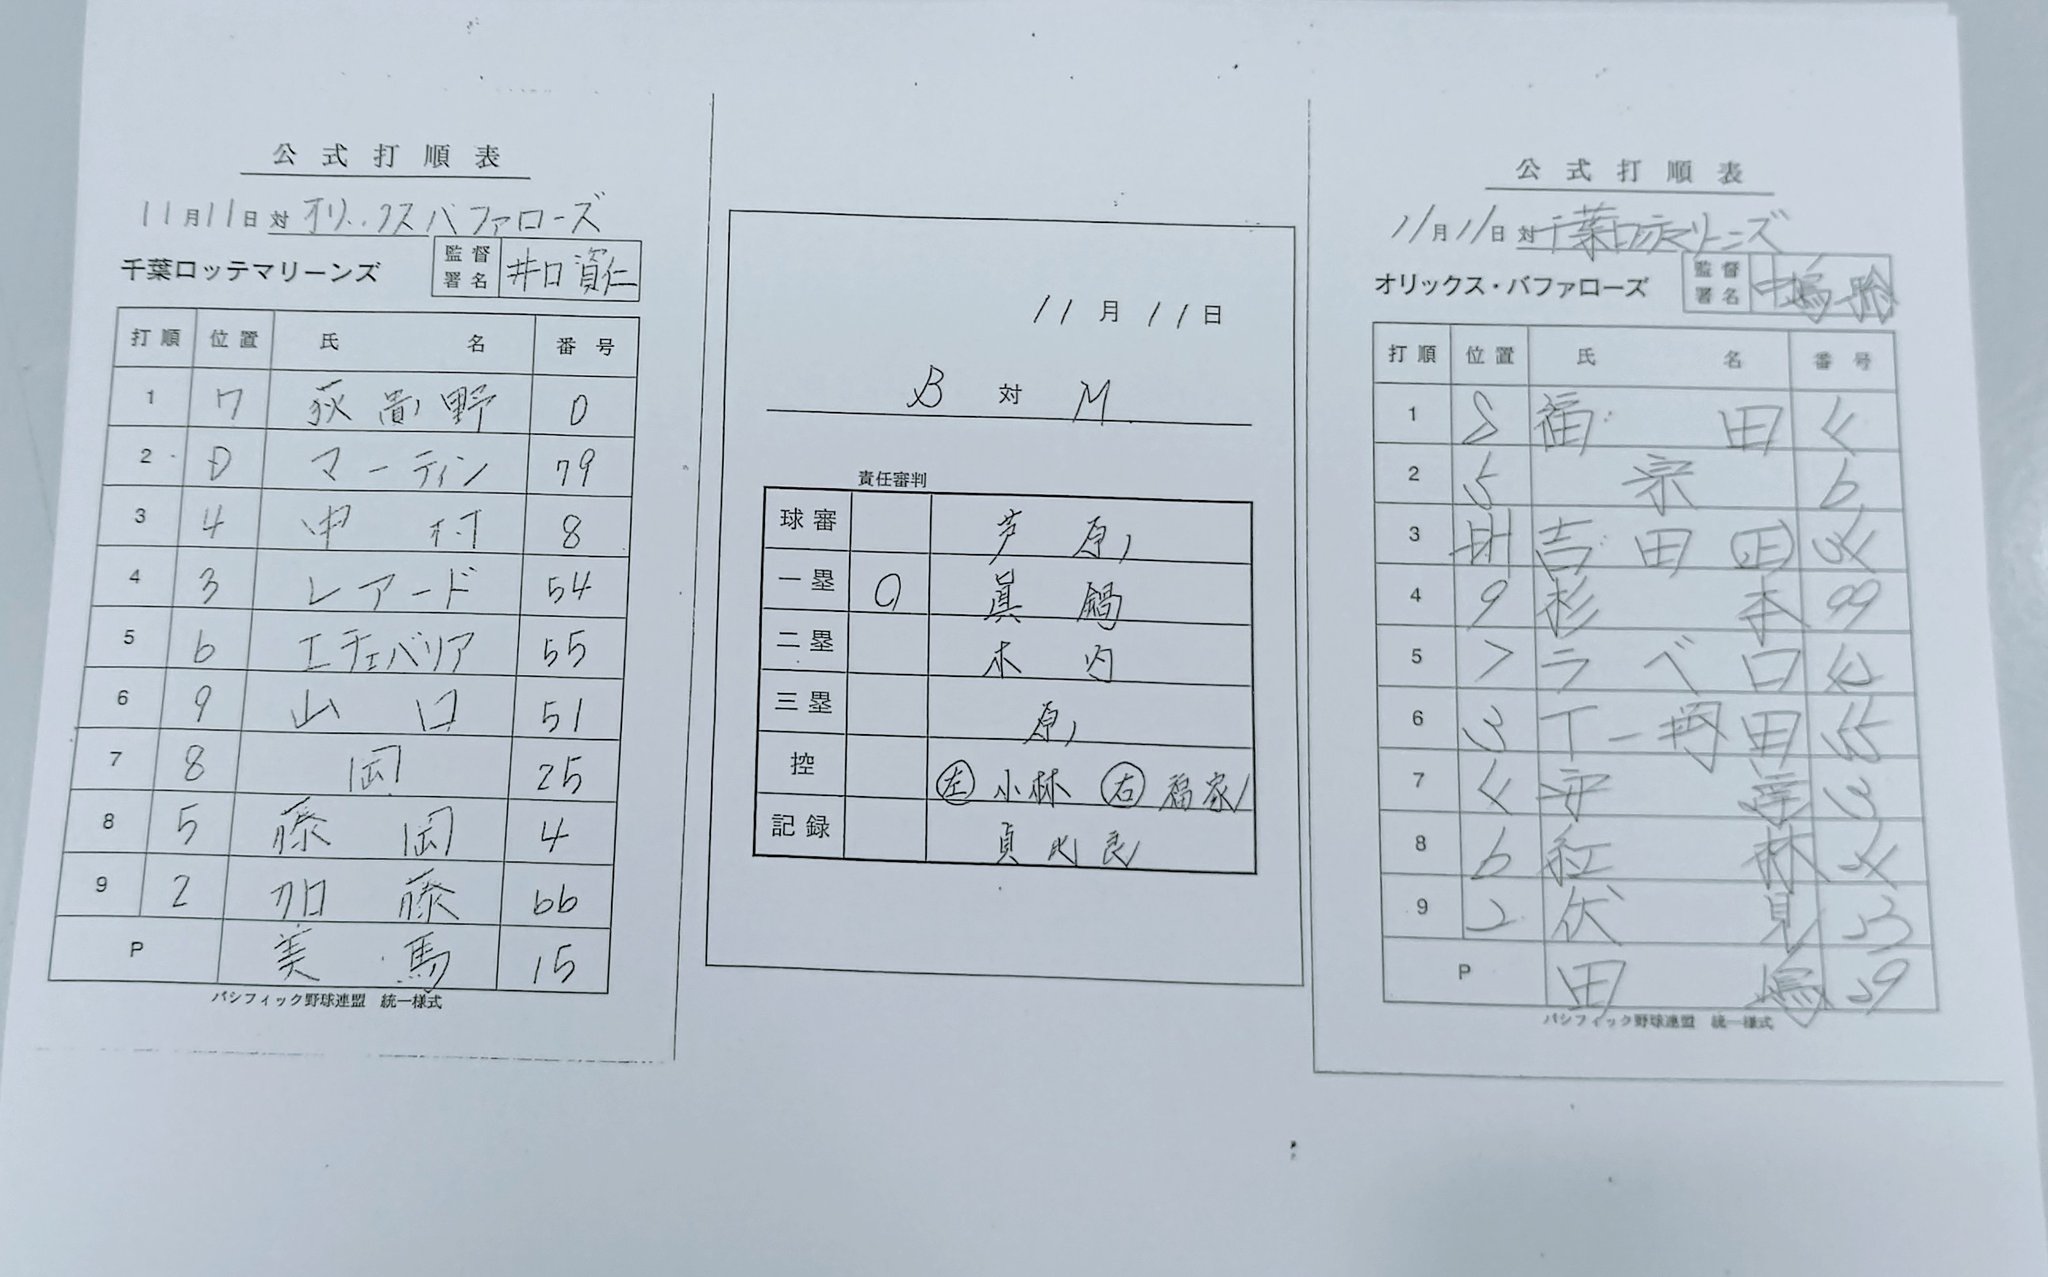 公式打順表
11月11日 対 オリックスバファローズ
千葉ロッテマリーンズ 監督署名 井口資仁
打順 位置 氏名 番号
1 7 荻貴野 0
2 D マーティン 79
3 4 中村 8
4 3 レアード 54
5 6 エチェバリア 55
6 9 山口 51
7 8 岡 25
8 5 藤岡 4
9 2 加藤 66
P 美馬 15
パシフィック野球連盟 統一様式
11月11日
B 対 M
責任審判
球審 芦原
一塁 ○ 眞鍋
二塁 木内
三塁 原
控 左 小林 右 福家
記録 貞比良
公式打順表
11月11日 対 千葉ロッテマリーンズ
オリックス・バファローズ 監督署名 中嶋聡
打順 位置 氏名 番号
1 8 福田 4
2 5 宗 6
3 DH 吉田正 34
4 9 杉本 99
5 7 ラベロ 42
6 3 T-岡田 55
7 4 安達 3
8 6 紅林 24
9 2 伏見 23
P 田嶋 29
パシフィック野球連盟 統一様式